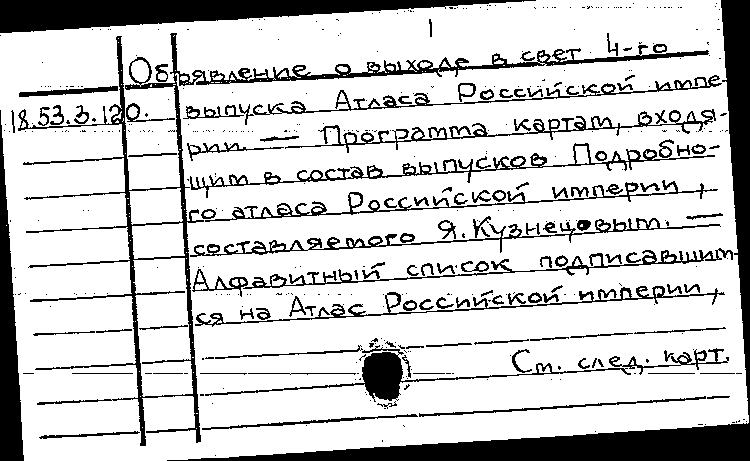 1
Объявление о выходе в свет 4-го
18.53.3.120.
выпуска Атласа Российской импе-
рии. — Программа картам, входя-
щим в состав выпусков Подробно-
го атласа Российской империи,
составляемого Я. Кузнецовым. —
Алфавитный список подписавшим-
ся на Атлас Российской империи,
См. след. карт.